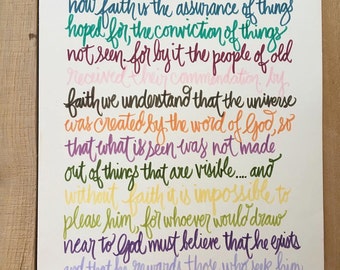 now faith is the assurance of things
hoped for the conviction of things
not seen. for by it the people of old
received their commendation by
faith we understand that the universe
was created by the word of God, so
that what is seen was not made
out of things that are visible.... and
without faith it is impossible to
please him, for whoever would draw
near to God must believe that he exists
and that he rewards those who seek him